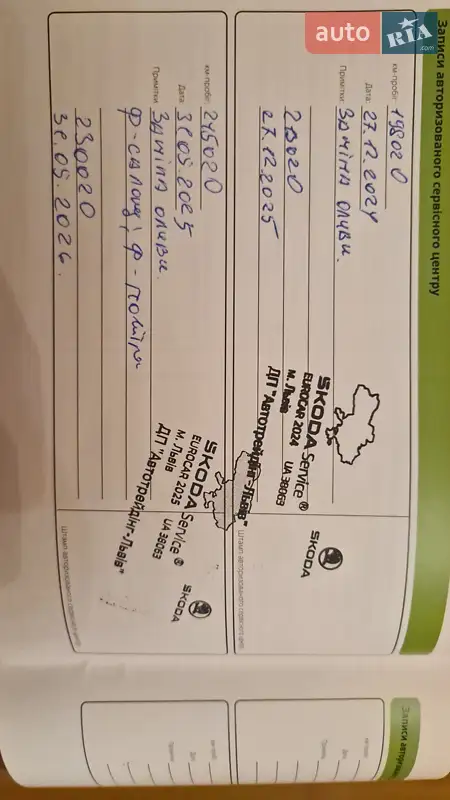 auto RIA .com
Записи авторизованого сервісного центру
км-пробіг: 198020
Дата: 27.12.2024
Примітки: Заміна оливи.
27.12.2025
SKODA Service ®
EUROCAR 2024 UA 38063
м. Львів
ДП "Автотрейдінг-Львів"
SKODA
Штамп авторизованого сервісного центру
км-пробіг: 215020
Дата: 31.05.2025
Примітки: Заміна оливи.
Ф-салону, Ф-повітря
230020
SKODA Service ®
EUROCAR 2025 UA 38063
м. Львів
ДП "Автотрейдінг-Львів"
SKODA
Штамп авторизованого сервісного центру
Записи авторизо
км-пробіг:
Дата:
Примітки:
км-пробіг:
Дата:
Примітки: